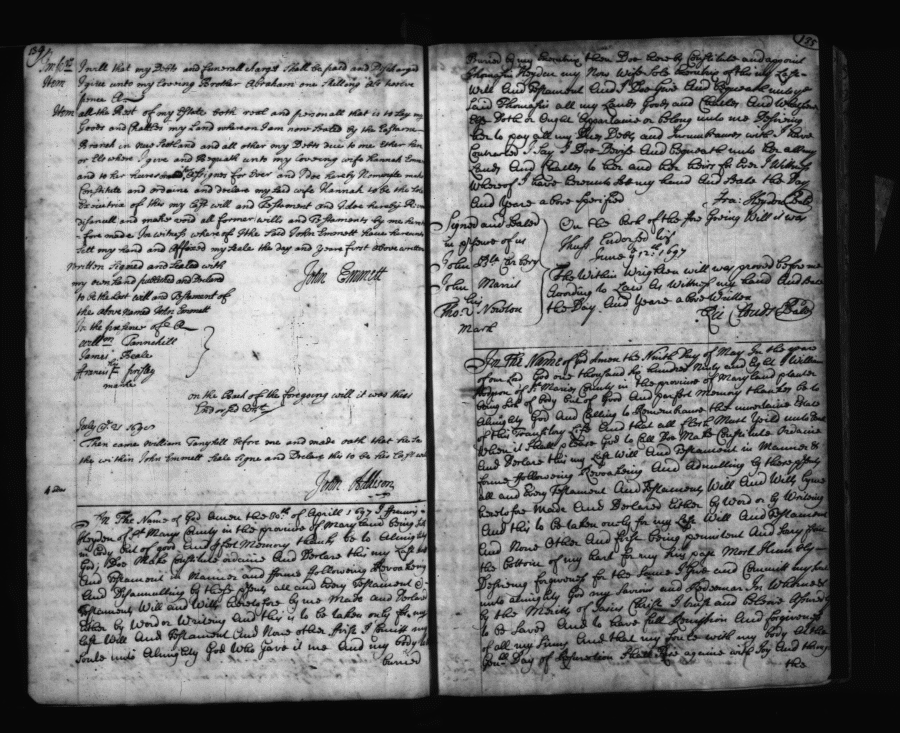 134
I will that my Debts and funerall Charges shall be paid and Discharged
Item I give unto my Loveing Brother Abraham one Shilling or twelve
pence
Item all the Rest of my Estate both reall and personall that is to say my
Goods and Chattles my Land whereon I am now Seated by the Eastern
Branch in new Scotland and all other my Debts due to me Either here
or Elswhere I give and Bequeath unto my Loveing wife Hannah
and to her heires and assignes for Ever and I doe hereby Nominate make
Constitute and ordaine and declare my said wife Hannah to be the
of this my Last will and Testament and I doe hereby
disanull and make void all former wills and Testaments by me
fore made In witness whereof I the said John Emmett have hereunto
Sett my hand and Affixed my Seale the day and year first above written
Written Signed and Sealed with
my own hand published and Declared
to be the Last will and Testament of
the above Named John Emmett
In the presence of
William Tannehill
James Beale
Francis
marke
on the Back of the foregoing will it was thus
Endorsed
John Emmett
July 21
Then came William Tanyhill before me and made oath that he
the within John Emmett Seale Signe and Declare this to be his Last will
John Addison
4 sides
In The Name of God Amen the 30th of Aprill 1697 I
Heyden of St Marys County in the province of Maryland being
in body but of good and perfect Memory thanks be to Almighty
God; Doe Make Constitute ordaine and Declare this my Last
And Testament in Manner and forme following Revoakeing
And Disannulling by these psents all and Every Testament &
Testaments Will and Wills heretofore by me Made and Declared
Either by Word or Writeing And this is to be taken only for my
Last Will And Testament And None other first I Committ my
Soule unto Almighty God Who Gave it me And my body to
buried
135
Buried by my Executrix then Doe hereby Constitute and appoint
Thomasin Heyden my Now Wife Sole Executrix of this my Last
Will And Testament And I Doe Give And Bequeath unto the
Said Thomasin all my Lands Goods and Chattles And Whatsoever
Else Doth or Ought Appertaine or belong unto me Desireing
her to pay all my Due Debts And Incumbrances wch I have
Contracted I Say I Doe Devise And Bequeath unto her all my
Lands And Chattles to her and her heirs for Ever In Wittness
Whereof I have hereunto Set my hand and Seale the Day
And Yeare above Specified
Fra: Heyden Seale
Signed and Sealed
in psence of us
John
John Morris
his
Tho: Newton
mark
On the Back of the fore Going Will it was
Thus Endorsed
June ye 12th 1697
The Within Wrighten will was proved before me
According to Law As Witness my hand And Seale
the Day And Yeare above Written
Seale
In The Name of God Amen the Ninth Day of May In the yeare
of our Lord God one thousand Six hundred Ninty and Eight I William
of St Maries County in the province of Maryland planter
being Sick of body but of Good And perfect Memory thanks be to
Almighty God And Calling to Remembrance the uncertaine Estate
of this Transitory Life And that all flesh Must Yield unto Death
When it Shall please God to Call Doe Make Constitute Ordaine
And Declare this my Last Will And Testament in Manner &
forme following Revoakeing And Adnulling by these psents
all and Every Testament And Testaments Will And Wills by me
heretofore Made And Declared Either by Word or by Writeing
And this to be taken onely for my Last Will And Testament
And None Other And first being penitent And Sorry from
the bottom of my hart for my Sins past Most Humbly
Desireing forgiveness for the Same I Give and Committ my Soul
unto almighty God my Saviour and Redeemer In Whome &
by the Meritts of Jesus Christ I trust and beleive Assuredly
to be Saved And to have full Remission And forgiveness
of all my Sinns And that my Soule with my body at the
Day of Resurrection shall Rise againe with Joy And through
the